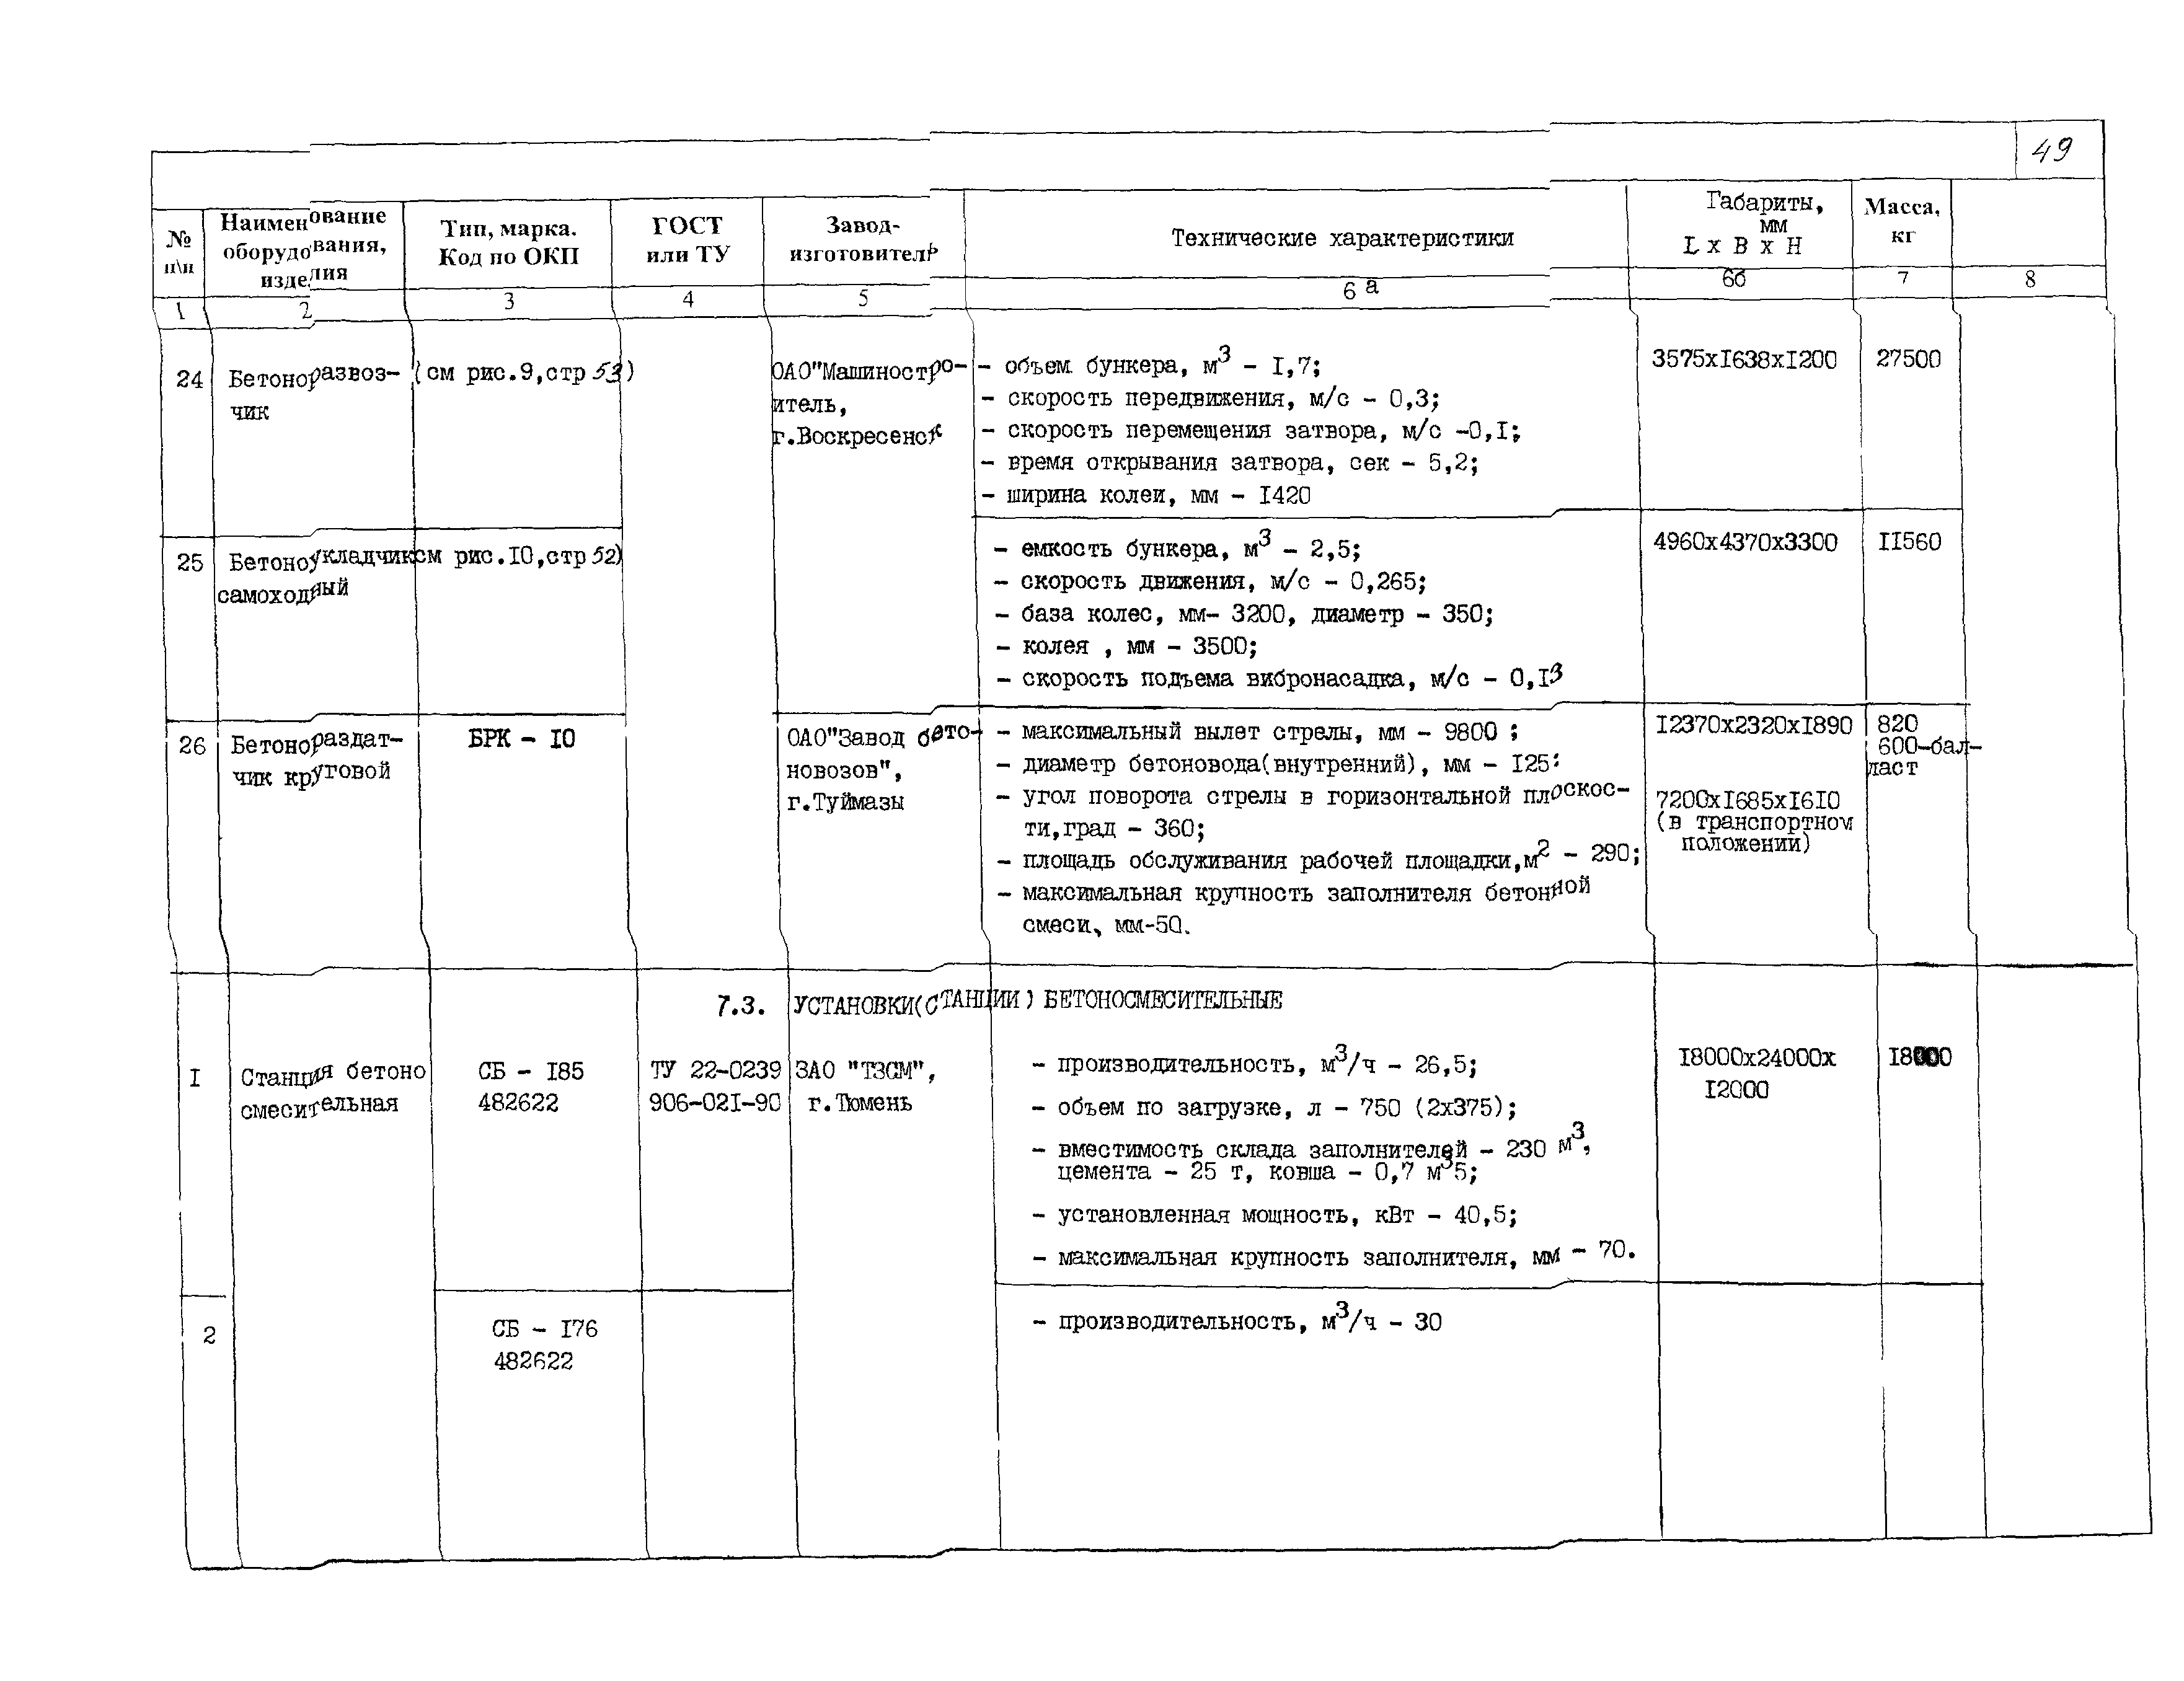 49
№ п\п
Наименование оборудования, изделия
Тип, марка. Код по ОКП
ГОСТ или ТУ
Завод-изготовитель
Технические характеристики
Габариты, мм L x B x H
Масса, кг
1 2 3 4 5 6 а 6б 7 8
24
Бетоноразвоз-
чик
(см рис.9,стр 53)
ОАО"Машиностро-
итель,
г.Воскресенск
- объем бункера, м3 - I,7;
- скорость передвижения, м/с - 0,3;
- скорость перемещения затвора, м/с -0,I;
- время открывания затвора, сек - 5,2;
- ширина колеи, мм - I420
3575xI638xI200
27500
25
Бетоноукладчик
самоходный
см рис.IO,стр 52)
- емкость бункера, м3 - 2,5;
- скорость движения, м/с - 0,265;
- база колес, мм- 3200, диаметр - 350;
- колея , мм - 3500;
- скорость подъема вибронасадка, м/с - 0,I3
4960x4370x3300
II560
26
Бетонораздат-
чик круговой
БРК - IO
ОАО"Завод бето-
новозов",
г.Туймазы
- максимальный вылет стрелы, мм - 9800 ;
- диаметр бетоновода(внутренний), мм - I25:
- угол поворота стрелы в горизонтальной плоскос-
ти,град - 360;
- площадь обслуживания рабочей площадки,м2 - 290;
- максимальная крупность заполнителя бетонной
смеси, мм-50.
I2370x2320xI890
7200xI685xI6IO
(в транспортном
положении)
820
600-бал-
ласт
7.3. УСТАНОВКИ(СТАНЦИИ) БЕТОНОСМЕСИТЕЛЬНЫЕ
I
Станция бетоно
смесительная
СБ - I85
482622
ТУ 22-0239
906-02I-90
ЗАО "ТЗСМ",
г.Тюмень
- производительность, м3/ч - 26,5;
- объем по загрузке, л - 750 (2x375);
- вместимость склада заполнителей - 230 м3,
цемента - 25 т, ковша - 0,7 м35;
- установленная мощность, кВт - 40,5;
- максимальная крупность заполнителя, мм - 70.
I8000x24000x
I2000
I8000
2
СБ - I76
482622
- производительность, м3/ч - 30